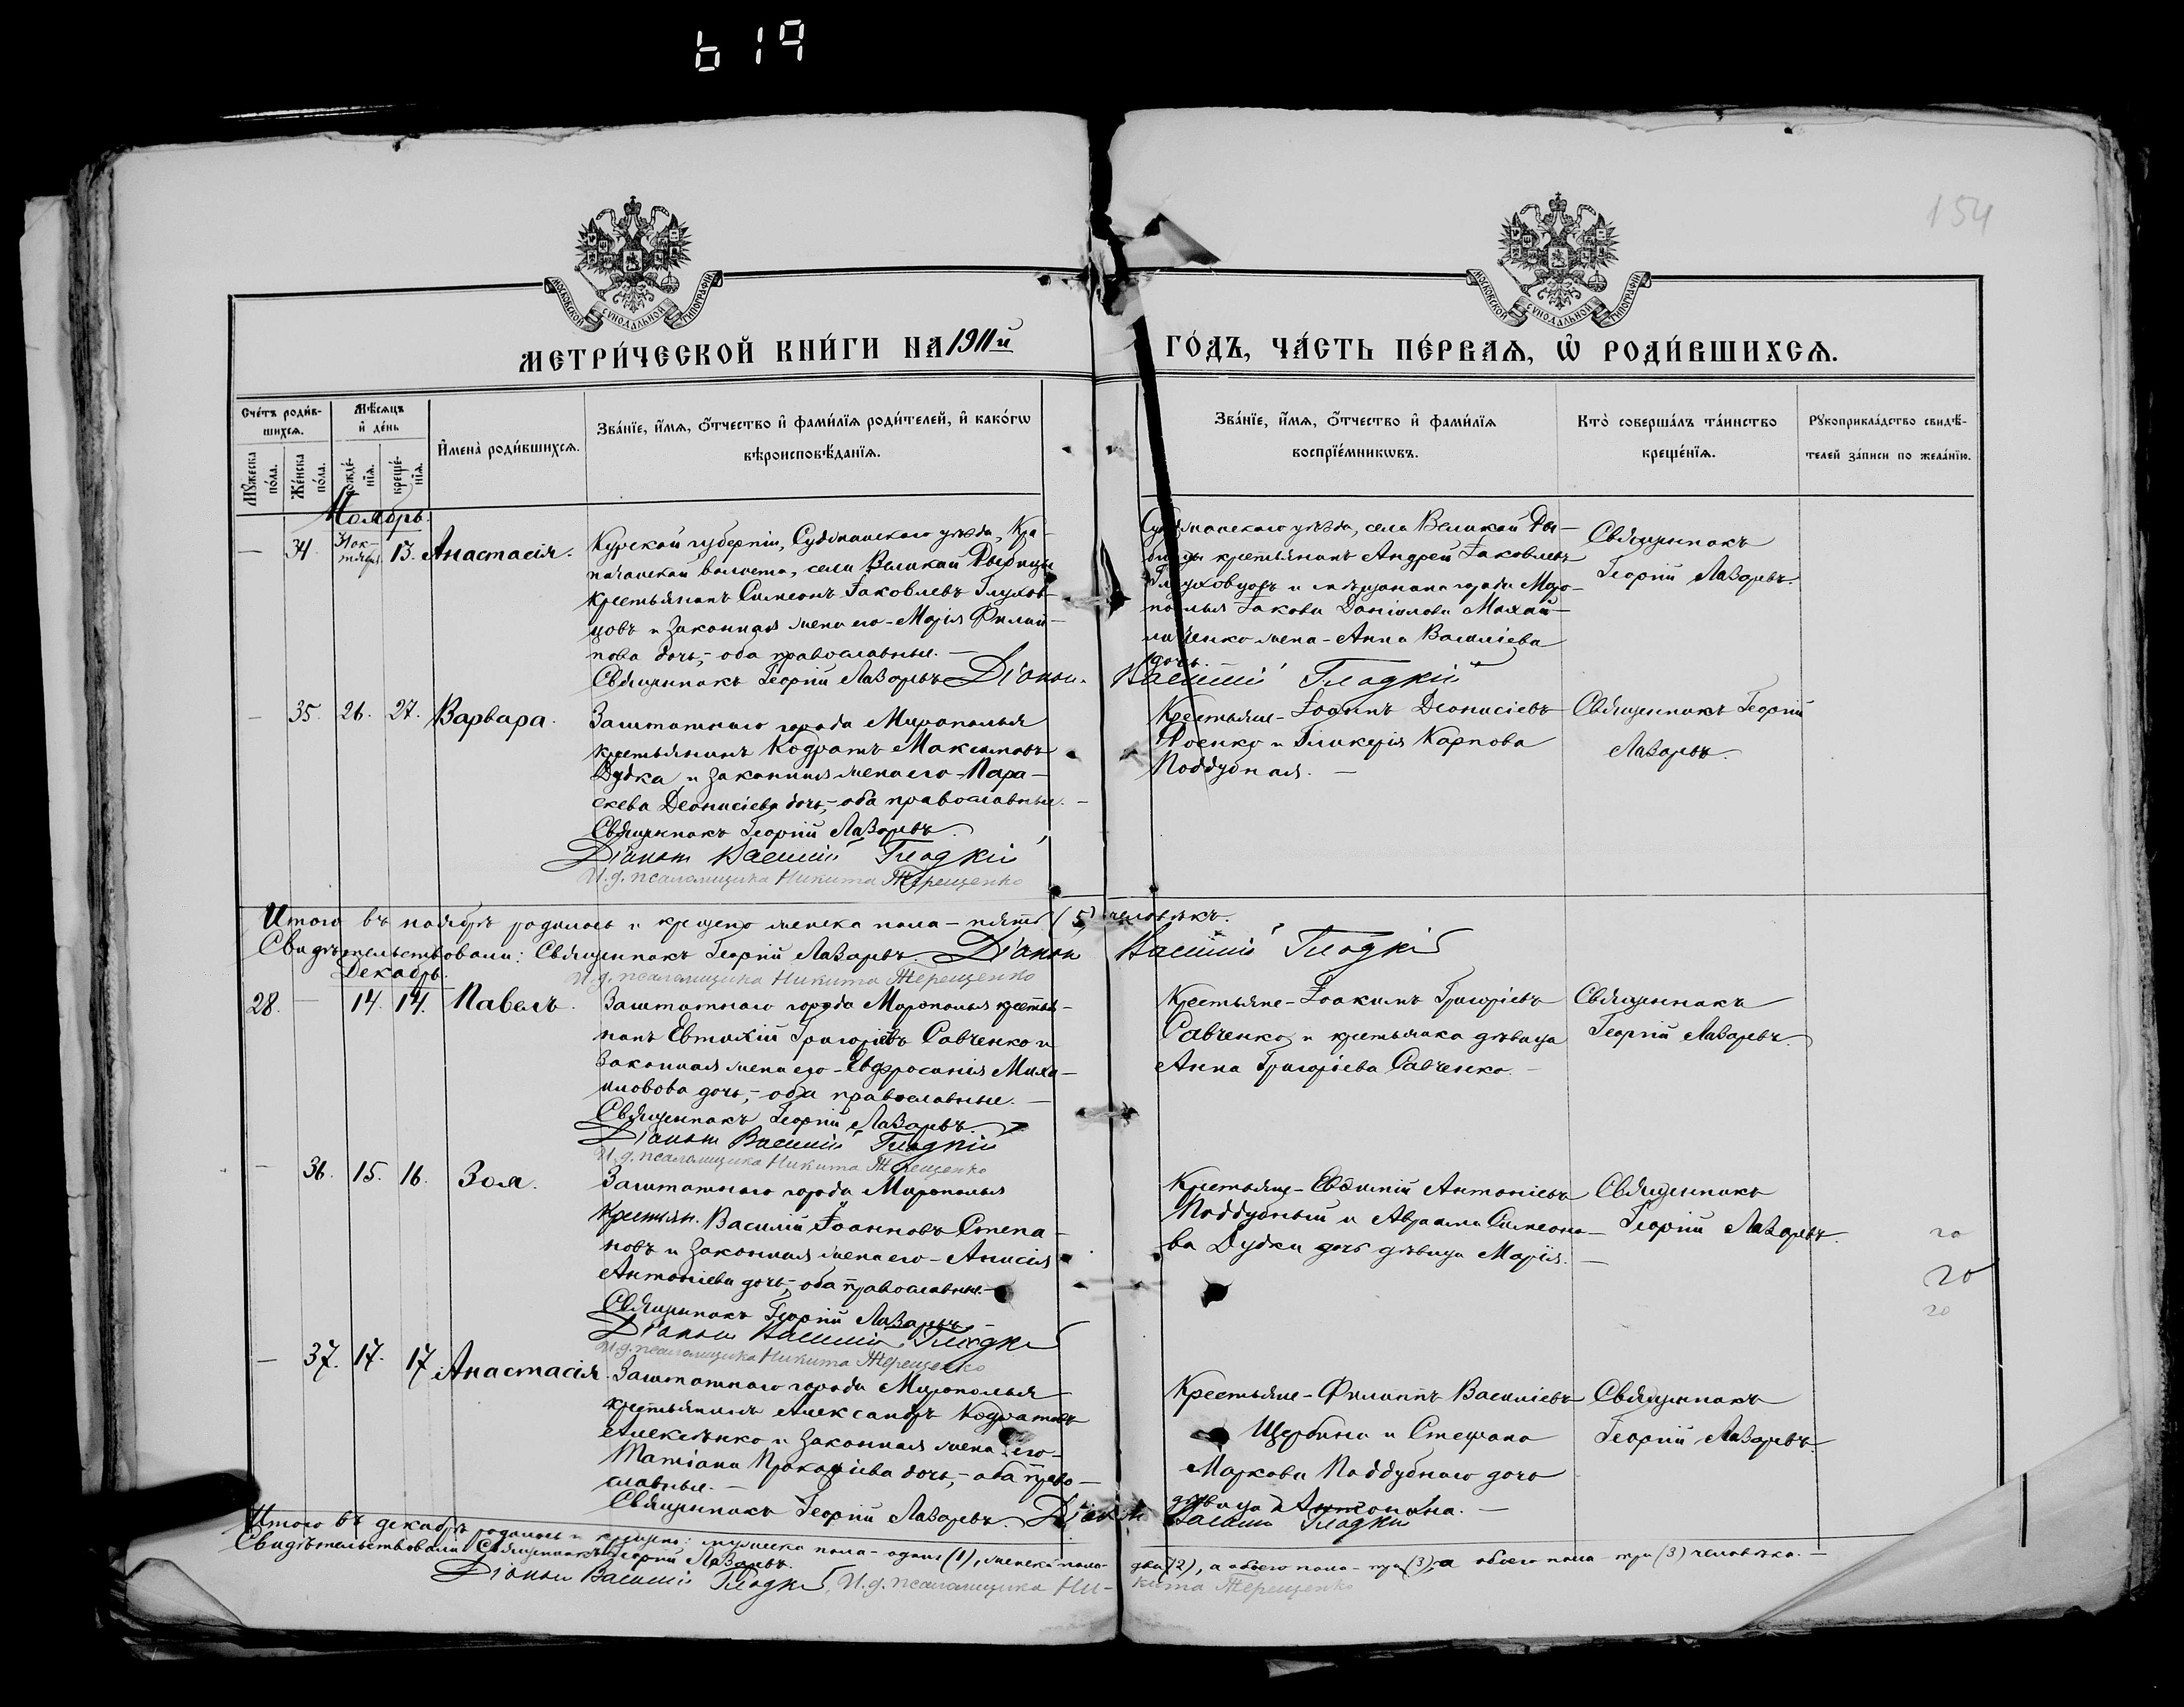 619
154
МОСКОВСКОЙ СѴНОДАЛЬНОЙ ТИПОГРАФІИ
МОСКОВСКОЙ СѴНОДАЛЬНОЙ ТИПОГРАФІИ
МЕТРИ́ЧЕСКОЙ КНИ́ГИ НА 1911й ГО́ДЪ, ЧА́СТЬ ПЕ́РВАЯ, Ѽ РОДИ́ВШИХСЯ.
Сче́тъ роди́в-
шихся.
Мѣ́сяцъ
и҆ де́нь
Мꙋ́жеска по́ла.
Же́нска по́ла.
рожде́-нїѧ.
креще́-нїѧ.
И҆мена̀ роди́вшихся.
Зва́нїе, и҆́мѧ, ѻ҆́тчество и҆ фами́лїѧ роди́телей, и҆ како́гѡ
вѣроисповѣ́данїѧ.
Зва́нїе, и҆́мѧ, ѻ҆́тчество и҆ фами́лїѧ
воспрїе́мникѡвъ.
Кто̀ соверша́лъ та́инство
креще́нїѧ.
Рꙋкоприкла́дство свидѣ́-
телей за́писи по жела́нїю.
Ноябрь.
— 34. 31 ок-
тября. 13. Анастасія.
Курской губерніи, Суджанскаго уѣзда,
волости, села Великой Рыбицы
крестьянинъ Симеонъ Іаковлевъ Глухов-
цовъ и законная жена его - Марія Филип-
пова дочь, - оба православные. —
Священникъ Георгій Лазаревъ Діаконъ Василій Гладкій
Суджанскаго уѣзда, села Великой Ры-
бицы крестьянинъ Андрей Іаковлевъ
Глуховцовъ и мѣщанина города Миро-
полья Іакова Даніилова Михай-
личенко жена - Анна Василіева
дочь.
Священникъ
Георгій Лазаревъ.
— 35. 26. 27. Варвара.
Заштатнаго города Мирополья
крестьянинъ Кодратъ Максимовъ
Дудка и законная жена его - Пара-
скева Деонисіева дочь, - оба православные. —
Священникъ Георгій Лазаревъ.
Діаконъ Василій Гладкій
И.д. псаломщика Никита Терещенко
Крестьяне - Іоаннъ Деонисіевъ
и Гликерія Карпова
Поддубная. —
Священникъ Георгій
Лазаревъ.
Итого въ ноябрѣ родилось и крещено женска пола - пять (5) человѣкъ.
Свидѣтельствовали: Священникъ Георгій Лазаревъ. Діаконъ Василій Гладкій
И.д. псаломщика Никита Терещенко
Декабрь.
28. — 14. 14. Павелъ.
Заштатнаго города Мирополья крестья-
нинъ Евтихій Григоріевъ Савченко и
законная жена его - Евфросинія Миха-
иловова дочь, - оба православные. —
Священникъ Георгій Лазаревъ.
Діаконъ Василій Гладкій
И.д. псаломщика Никита Терещенко
Крестьяне - Іоакимъ Григоріевъ
Савченко и крестьянка дѣвица
Анна Григоріева Савченко. —
Священникъ
Георгій Лазаревъ.
— 36. 15. 16. Зоя.
Заштатнаго города Мирополья
крестьян. Василій Іоанновъ Степа-
новъ и законная жена его - Анисія
Антоніева дочь, - оба православные. —
Священникъ Георгій Лазаревъ.
Діаконъ Василій Гладкій
И.д. псаломщика Никита Терещенко
Крестьяне - Евѳимій Антоніевъ
Поддубный и Авраама Симеоно-
ва Дудки дочь дѣвица Марія. —
Священникъ
Георгій Лазаревъ.
20
20
20
— 37. 17. 17. Анастасія.
Заштатнаго города Мирополья
крестьянинъ Александръ Кодратовъ
Алексѣнко и законная жена его -
Татіана Прокопіева дочь, - оба право-
славные. —
Священникъ Георгій Лазаревъ. Діаконъ Василій Гладкій
Крестьяне - Филиппъ Василіевъ
Щербина и Стефана
Маркова Поддубнаго дочь
дѣвица Антонина. —
Священникъ
Георгій Лазаревъ
Итого въ декабрѣ родилось и крещено: мужеска пола - одинъ (1), женска пола - два (2), а обоего пола - три (3), а обоего пола - три (3) человѣка. —
Свидѣтельствовали: Священникъ Георгій Лазаревъ.
Діаконъ Василій Гладкій, И.д. псаломщика Ни-кита Терещенко